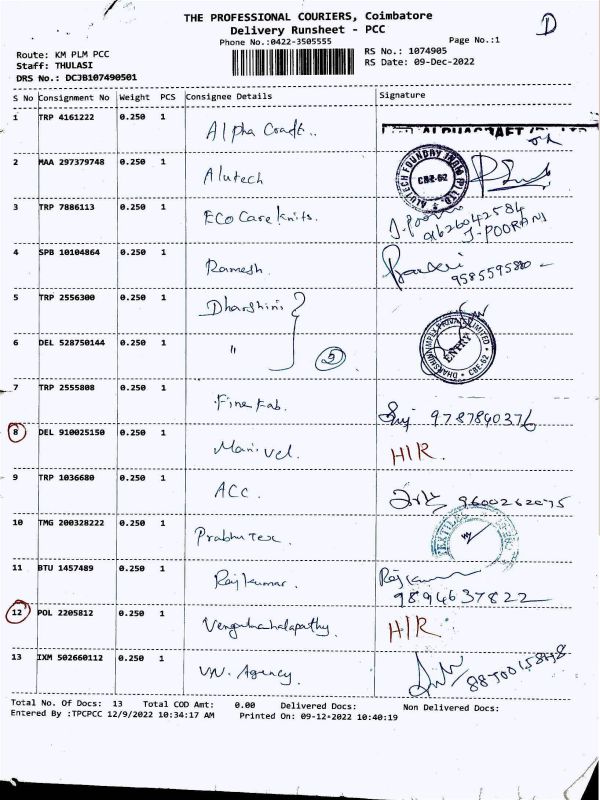 THE PROFESSIONAL COURIERS, Coimbatore
Delivery Runsheet - PCC
D
Phone No.:0422-3505555
Page No.:1
Route: KM PLM PCC
RS No.: 1074905
Staff: THULASI
RS Date: 09-Dec-2022
DRS No.: DCJB107490501
S No Consignment No Weight PCS Consignee Details Signature
1 TRP 4161222 0.250 1 Alpha Craft..
2 MAA 297379748 0.250 1 Alutech
ALUTECH FOUNDRY INDIA (P) LTD CBE-62
3 TRP 7886113 0.250 1 ECO Care Knits.
J-POORANI
4 SPB 10104864 0.250 1 Ramesh.
5 TRP 2556300 0.250 1 Dharshini
6 DEL 528750144 0.250 1 " 5
PRIVATE LIMITED ENTRY CBE-62
7 TRP 2555808 0.250 1 Fine Fab.
9787840376
8 DEL 910025150 0.250 1 Manivel.
H/R.
9 TRP 1036680 0.250 1 ACC.
9600262075
10 TMG 200328222 0.250 1 Prabhu Tex.
11 BTU 1457489 0.250 1 Rajkumar.
9894637822
12 POL 2205812 0.250 1
H/R
13 IXM 502660112 0.250 1 VN. Agency.
Total No. Of Docs: 13 Total COD Amt: 0.00 Delivered Docs: Non Delivered Docs:
Entered By :TPCPCC 12/9/2022 10:34:17 AM Printed On: 09-12-2022 10:40:19